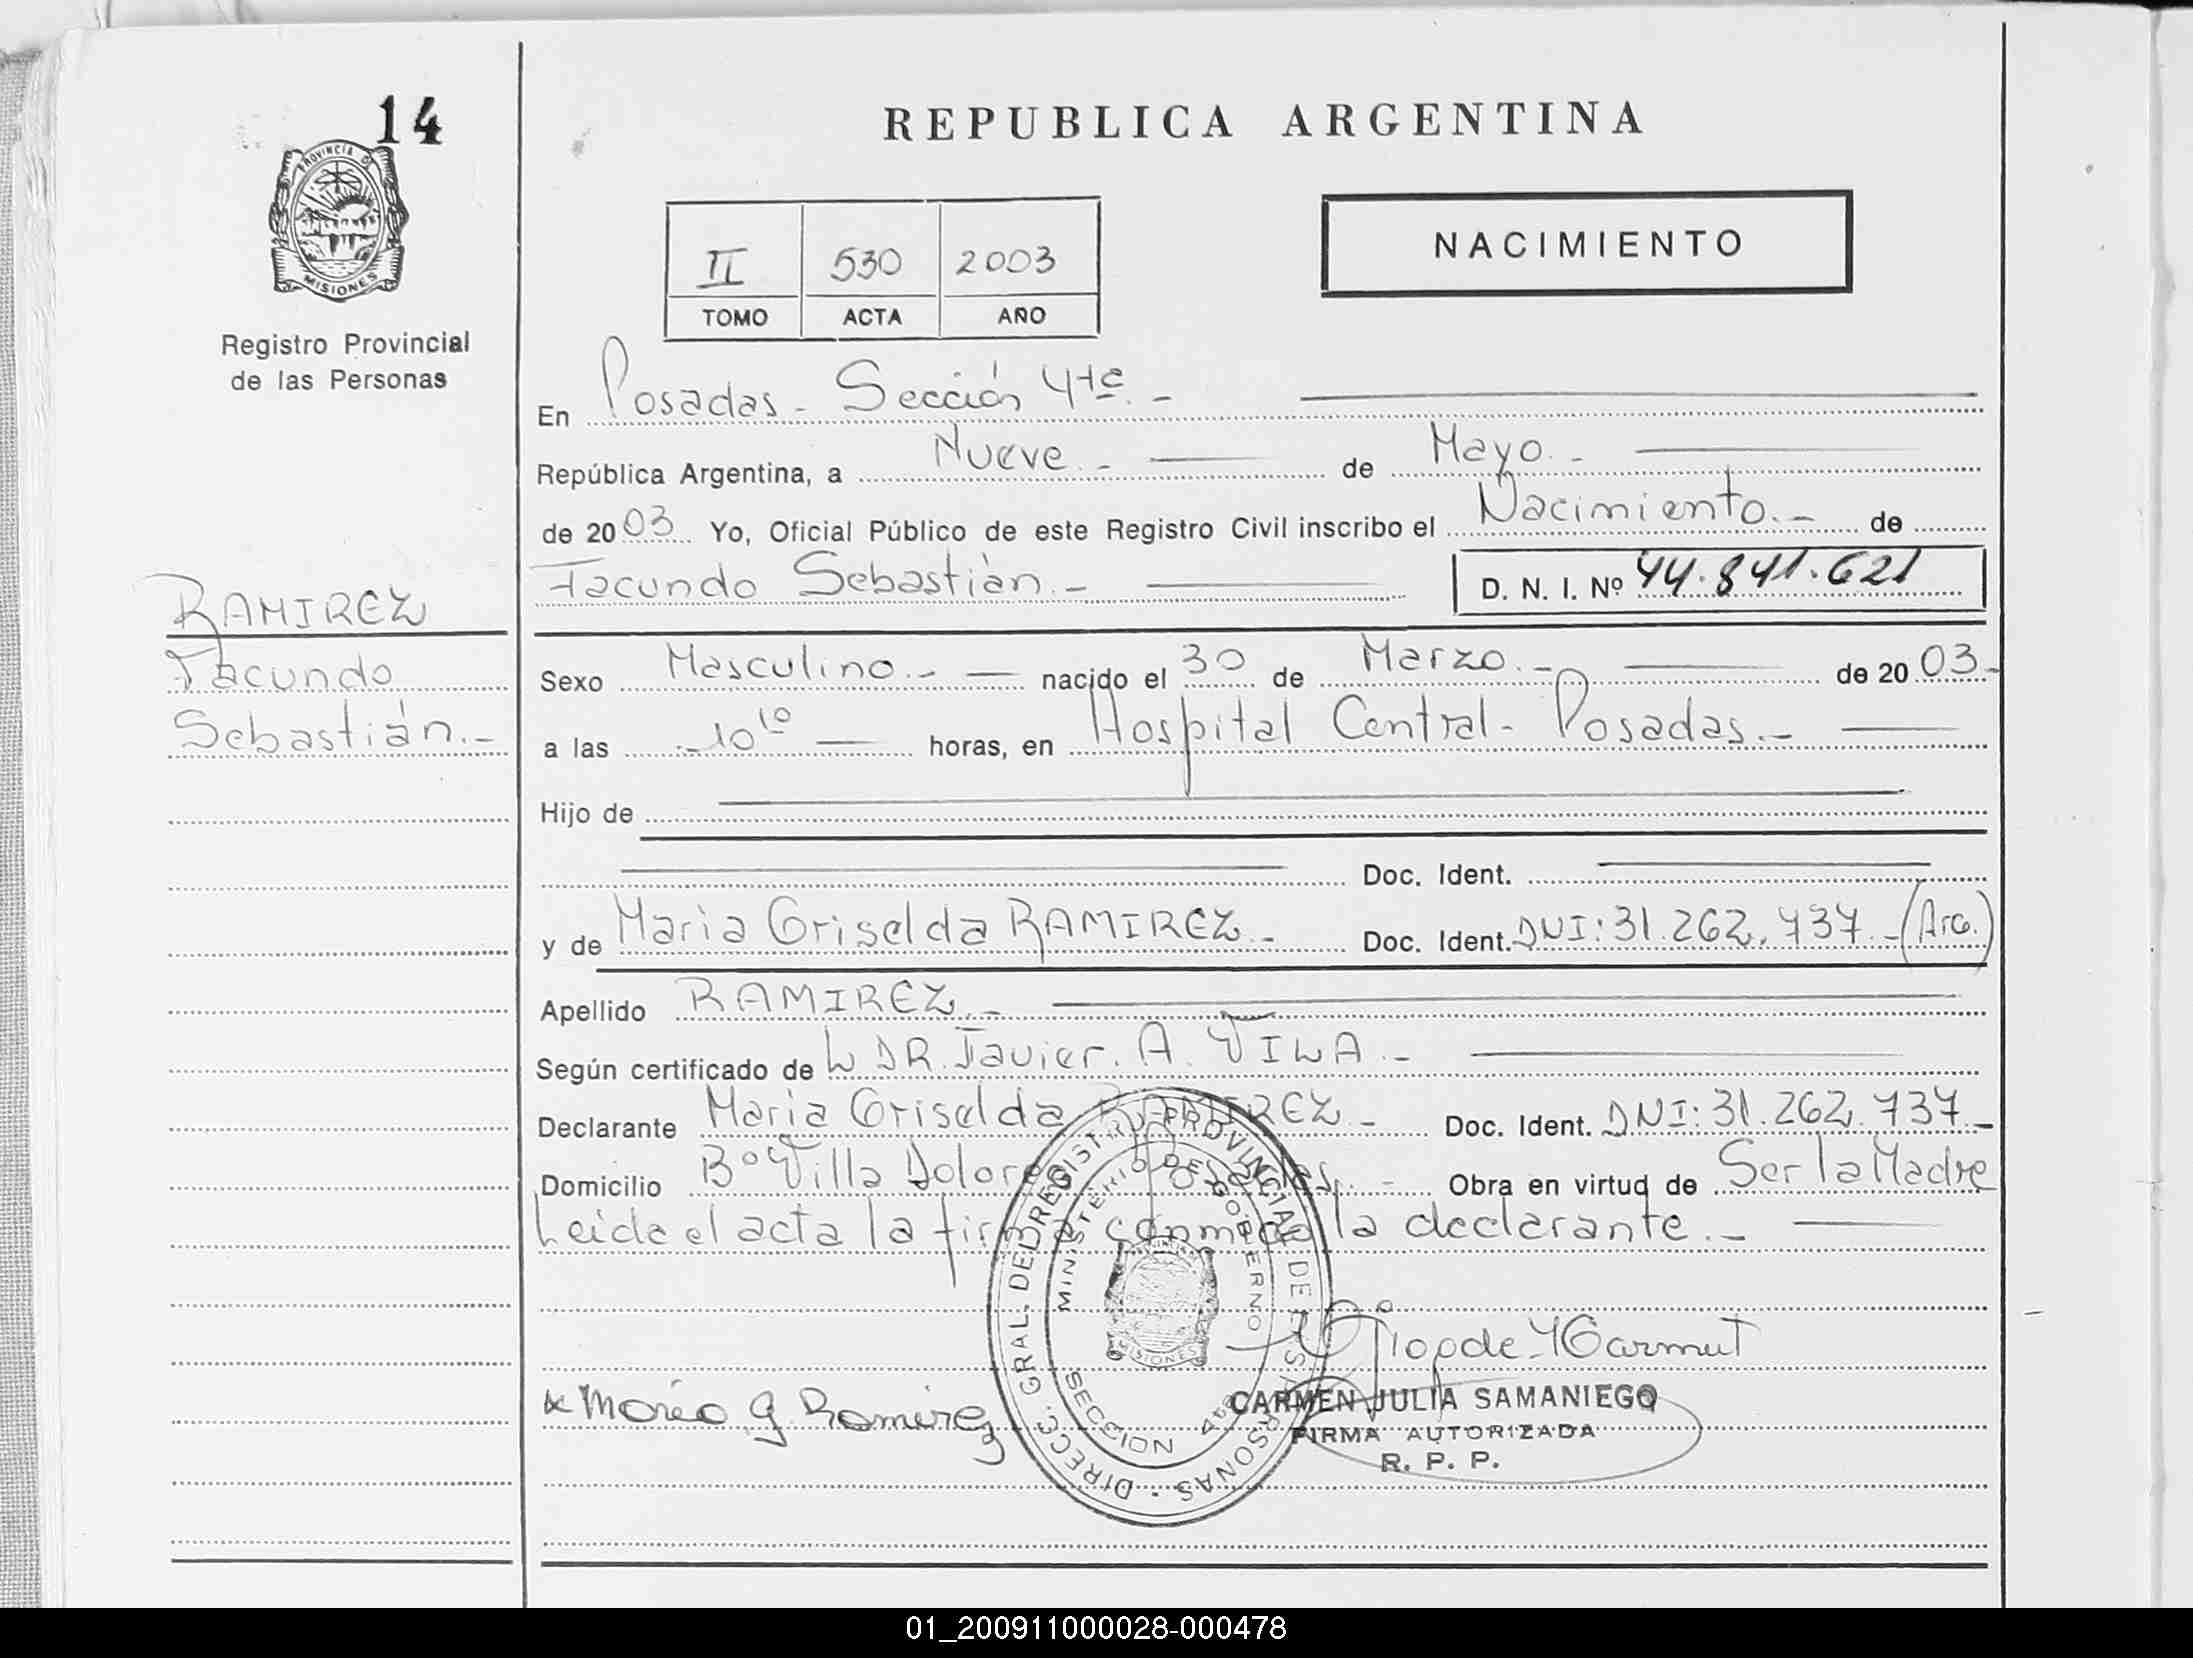 14
PROVINCIA D
MISIONES
Registro Provincial
de las Personas
RAMIREZ
Facundo
Sebastián.-
REPUBLICA ARGENTINA
II 530 2003
TOMO ACTA AÑO
NACIMIENTO
En Posadas - Sección 4ta.-
República Argentina, a Nueve.- de Mayo.-
de 2003 Yo, Oficial Público de este Registro Civil inscribo el Nacimiento.- de
Facundo Sebastián.- D. N. I. Nº 44.841.621
Sexo Masculino.- nacido el 30 de Marzo.- de 2003.-
a las 10 10 horas, en Hospital Central - Posadas.-
Hijo de
Doc. Ident.
y de Maria Griselda RAMIREZ.- Doc. Ident. DNI: 31.262.737.- (Arg.)
Apellido RAMIREZ.-
Según certificado de L DR. Javier. A. VILA.-
Declarante Maria Griselda RAMIREZ.- Doc. Ident. DNI: 31.262.737.-
Domicilio Bº Villa Dolores Posadas.- Obra en virtud de Ser la Madre
Leida el acta la firma conmigo la declarante.-
DIRECC. GRAL. DEL REGISTRO PROVINCIAL DE LAS PERSONAS
MINISTERIO DE GOBIERNO
MISIONES
SECCION 4ta
Maria G Ramirez
CARMEN JULIA SAMANIEGO
FIRMA AUTORIZADA
R. P. P.
01_200911000028-000478